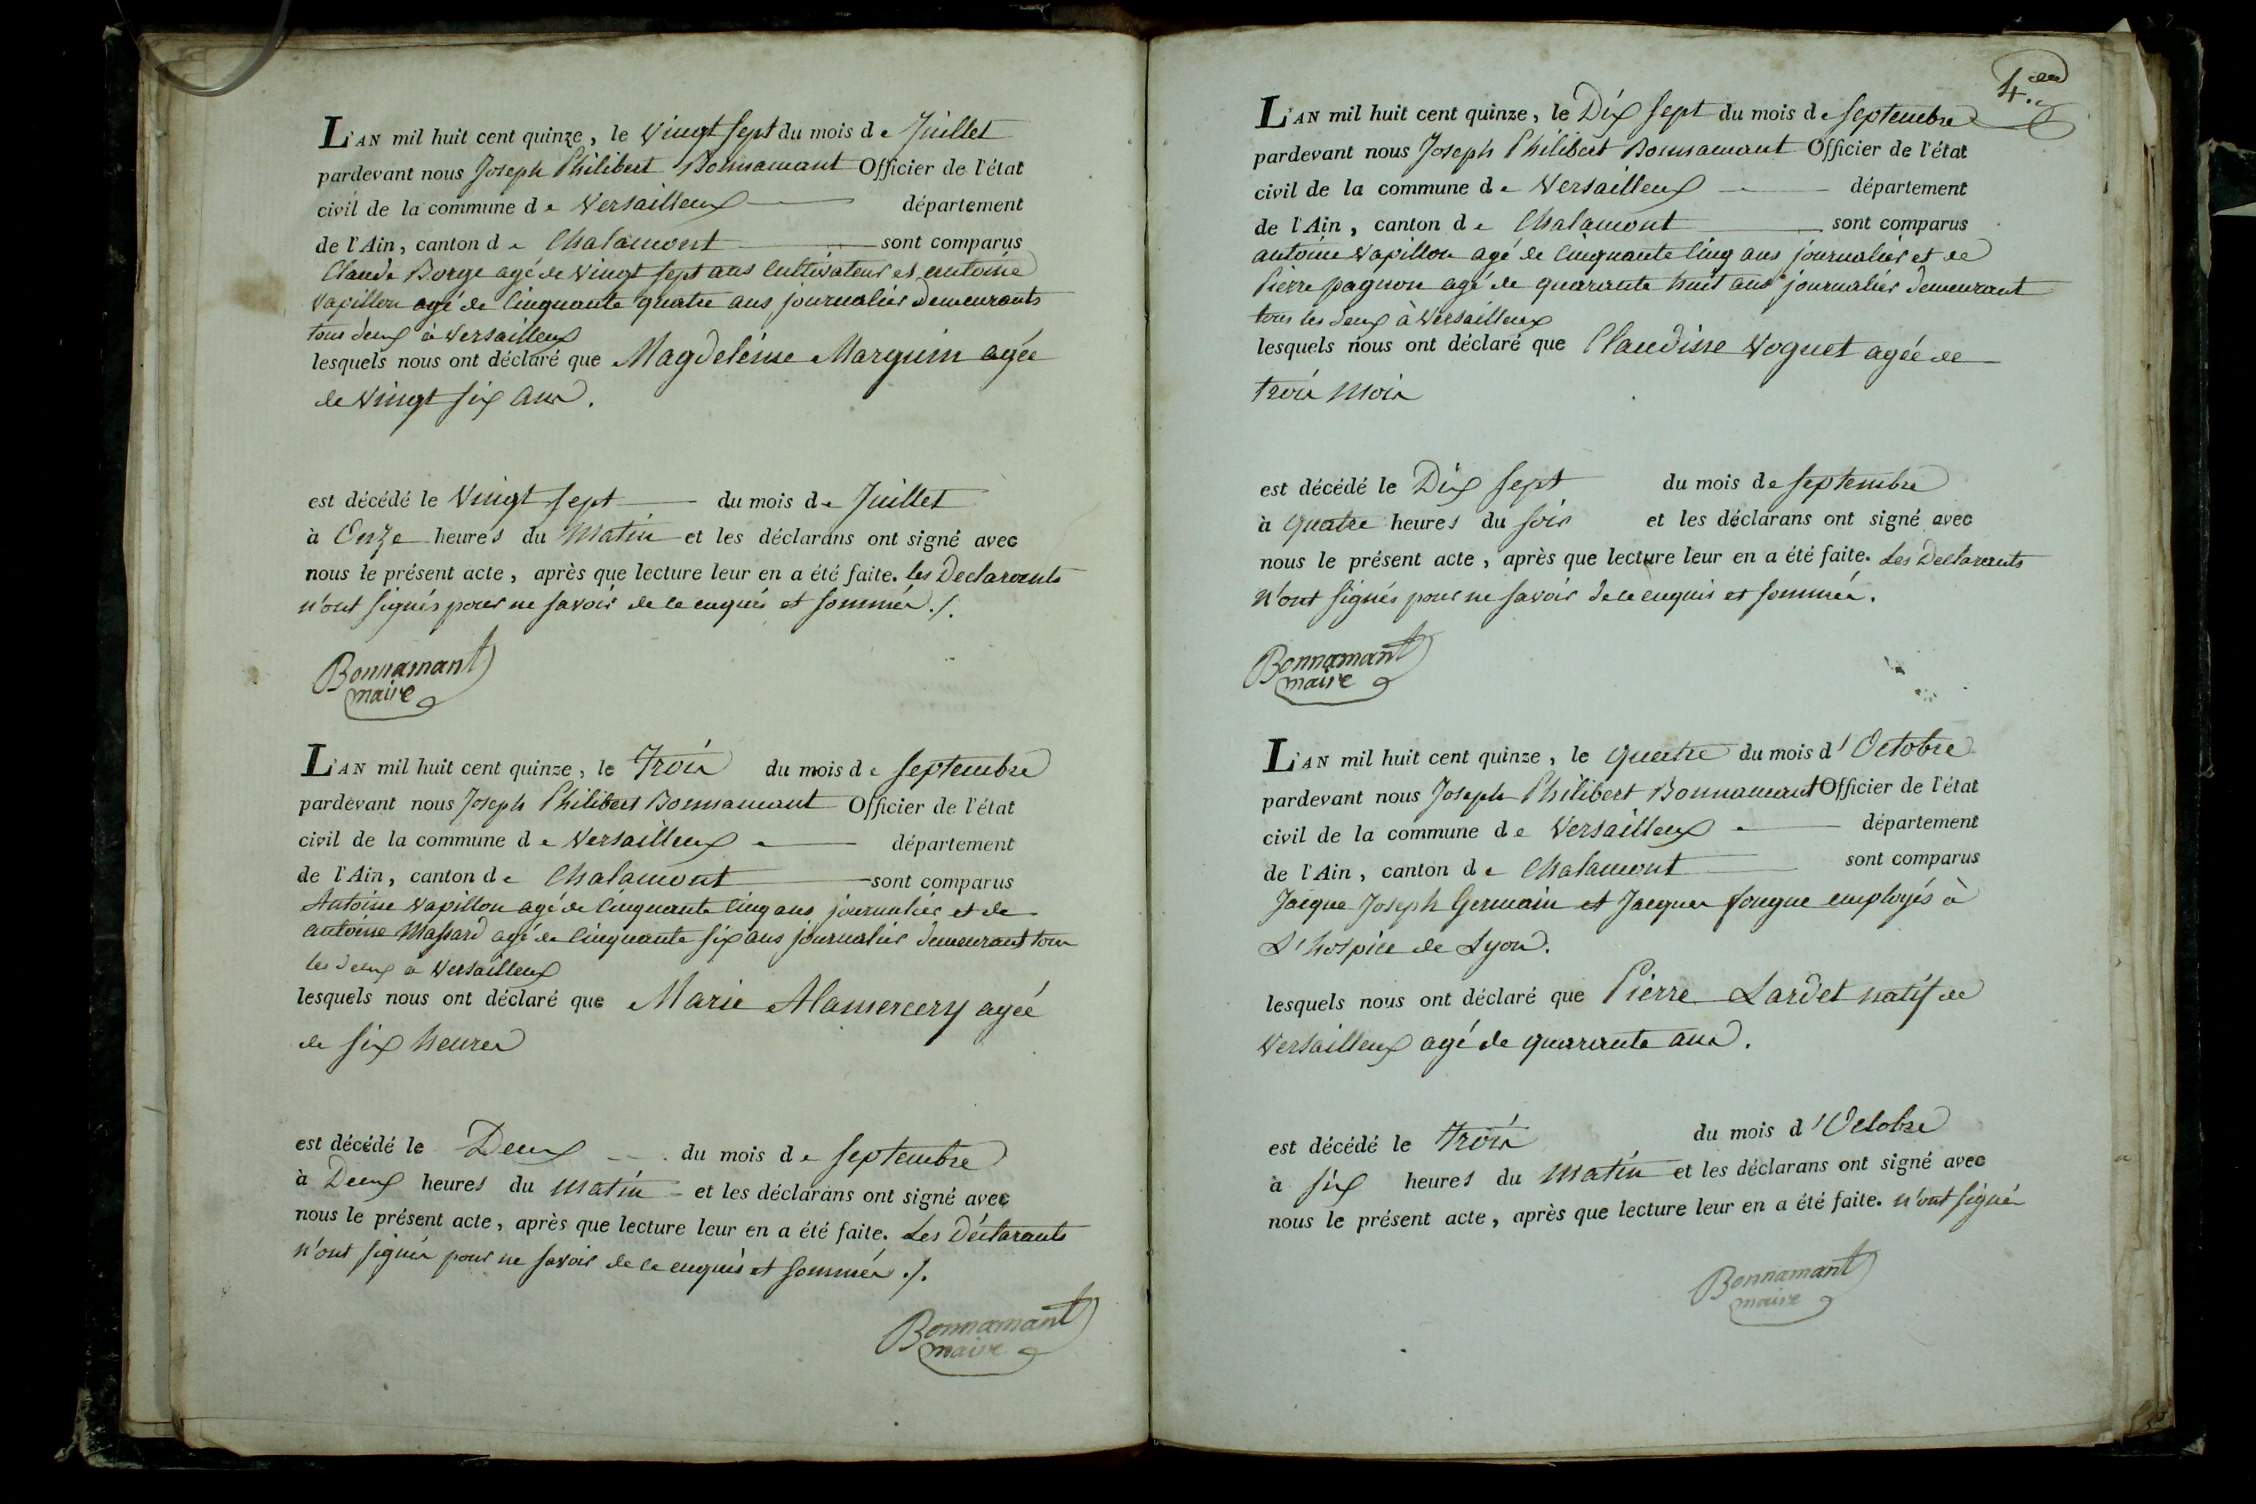 L'AN mil huit cent quinze, le Vingt sept du mois de Juillet
pardevant nous Joseph Philibert Bonnamant Officier de l'état
civil de la commune de Versailleux département
de l'Ain, canton de Chalamont sont comparus
Claude Borge agé de Vingt sept ans Cultivateur et antoine
Vapillon agé de Cinquante quatre ans journalier demeurants
tous deux à Versailleux
lesquels nous ont déclaré que Magdeleine Marguin agée
de Vingt six ans.
est décédé le Vingt sept du mois de Juillet
à Onze heures du Matin et les déclarans ont signé avec
nous le présent acte, après que lecture leur en a été faite. les Declarants
n'ont signés pour ne savoir de ce enquis et sommés ./.
Bonnamant
maire
L'AN mil huit cent quinze, le Trois du mois de Septembre
pardevant nous Joseph Philibert Bonnamant Officier de l'état
civil de la commune de Versailleux département
de l'Ain, canton de Chalamont sont comparus
Antoine Vapillon agé de Cinquante Cinq ans journalier et de
antoine Massard agé de Cinquante six ans journalier demeurant tous
les deux à Versailleux
lesquels nous ont déclaré que Marie Alamercery agée
de six heures
est décédé le Deux du mois de Septembre
à Deux heures du Matin et les déclarans ont signé avec
nous le présent acte, après que lecture leur en a été faite. Les Déclarants
n'ont signés pour ne savoir de ce enquis et sommés ./.
Bonnamant
maire
4.
L'AN mil huit cent quinze, le Dix sept du mois de Septembre
pardevant nous Joseph Philibert Bonnamant Officier de l'état
civil de la commune de Versailleux département
de l'Ain, canton de Chalamont sont comparus
antoine Vapillon agé de Cinquante Cinq ans journalier et de
Pierre pagnon agé de quarante huit ans journalier demeurant
tous les deux à Versailleux
lesquels nous ont déclaré que Claudine Voguet agée de
trois Mois
est décédé le Dix sept du mois de Septembre
à quatre heures du soir et les déclarans ont signé avec
nous le présent acte, après que lecture leur en a été faite. Les Declarants
n'ont signés pour ne savoir de ce enquis et sommés.
Bonnamant
maire
L'AN mil huit cent quinze, le quatre du mois d'Octobre
pardevant nous Joseph Philibert Bonnamant Officier de l'état
civil de la commune de Versailleux département
de l'Ain, canton de Chalamont sont comparus
Jacque Joseph Germain et Jacques fougue employés à
L'hospice de Lyon.
lesquels nous ont déclaré que Pierre Lardet natif de
Versailleux agé de quarante ans.
est décédé le Trois du mois d'Octobre
à six heures du Matin et les déclarans ont signé avec
nous le présent acte, après que lecture leur en a été faite. n'ont signés
Bonnamant
maire